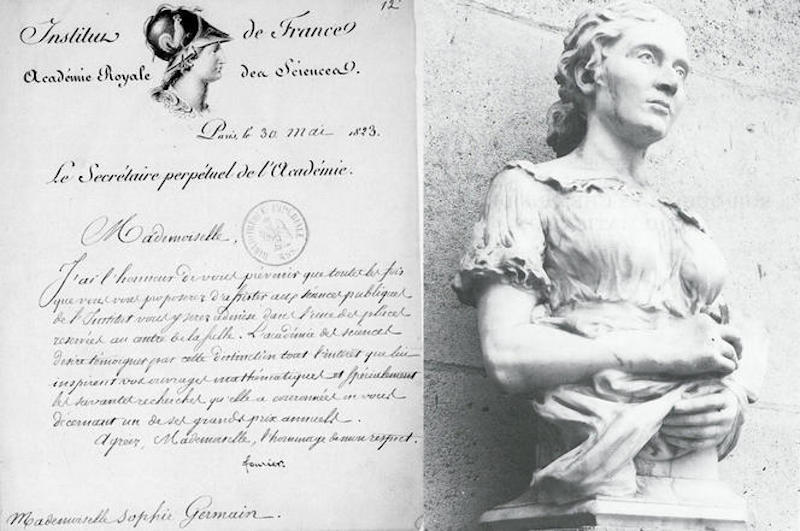 12
Institut de France
Académie Royale des Sciences.
Paris, le 30 mai 1823.
Le Secrétaire perpétuel de l'Académie.
BIBLIOTHEQUE IMPERIALE
Mademoiselle,
J'ai l'honneur de vous prévenir que toutes les fois
que vous vous proposerez d'assister aux séances publiques
de l'Institut vous y serez admise dans l'une des places
reservées au centre de la salle. L'académie des sciences
desire témoigner par cette distinction tout l'intérêt que lui
inspirent vos ouvrages mathématiques et spécialement
les savantes recherches qu'elle a couronnées en vous
décernant un de ses grands prix annuels.
Agréez, Mademoiselle, l'hommage de mon respect.
fourier
Mademoiselle Sophie Germain.